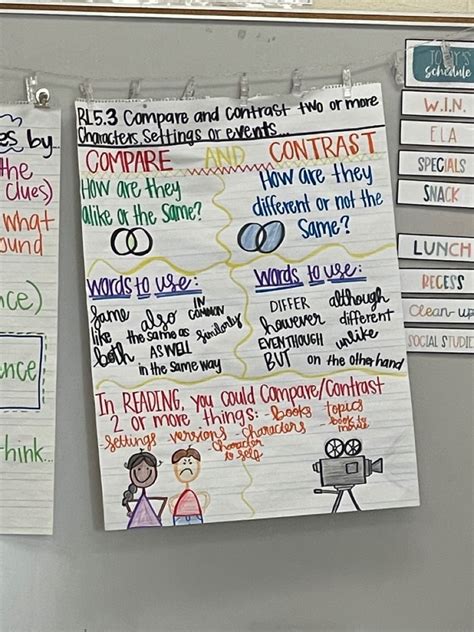 RL5.3 Compare and Contrast two or more
Characters, Settings or events...
COMPARE AND CONTRAST
How are they
alike or the Same?
How are they
different or not the
Same?
Words to use:
Same also IN COMMON
like the same as Similarly
both AS WELL
in the same way
Words to use:
DIFFER although
however different
EVENTHOUGH unlike
BUT on the other hand
In READING, you could Compare/Contrast
2 or more things: - Books topics
settings versions characters - book
movie
- Character
to self
es by...
the
clues)
what
ound
ce)
ence
hink...
TODAY'S
Schedule
W.I.N.
ELA
SPECIALS
SNACK
LUNCH
RECESS
Clean-up
SOCIAL STUDIE